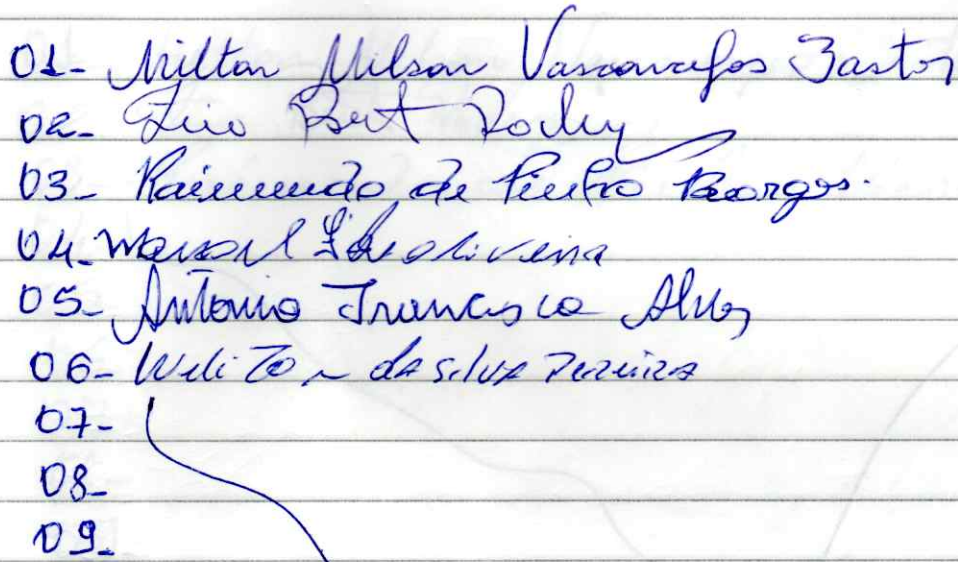 01- Nilton Milson Vasconcelos Bastos
02-
03- Raimundo de Pinho Borges.
04- Manoel oliveira
05- Antonio Francisco Alves
06- Weliton da silva Pereira
07-
08-
09-